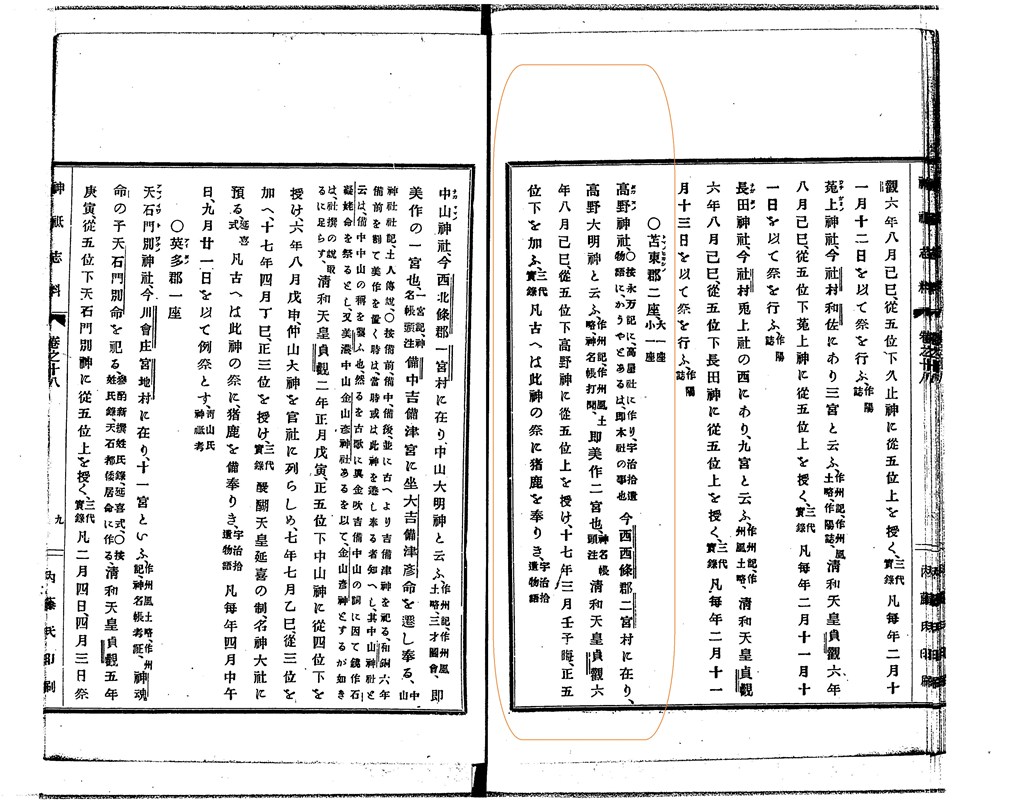 觀六年八月己巳、從五位下久止神に從五位上を授く、三代實錄 凡每年二月十
一月十二日を以て祭を行ふ、作陽誌
菟上神社、今社村和佐にあり三宮と云ふ、作州記、作州風土略、作陽誌、清和天皇貞觀六年
八月己巳、從五位下菟上神に從五位上を授く、三代實錄 凡每年二月十一月十
一日を以て祭を行ふ、作陽誌
長田神社、今社村兎上社の西にあり、九宮と云ふ、作州記、作州風土略、清和天皇貞觀
六年八月己巳、從五位下長田神に從五位上を授く、三代實錄 凡每年二月十一
月十三日を以て祭を行ふ、作陽誌
〇苫東郡二座、大一座小一座
高野神社、〇按永万記に、高屋社に作り、宇治拾遺物語に、かうやとあるは、即本社の事也 今西西條郡二宮村に在り、
高野大明神と云ふ、作州記、作州風土略、神名帳打聞、即美作二宮也、神名帳頭注 清和天皇貞觀六
年八月己巳、從五位下高野神に從五位上を授け、十七年三月壬子晦、正五
位下を加ふ、三代實錄 凡古へは此神の祭に猪鹿を奉りき、宇治拾遺物語
神祇志料 卷之十八
中山神社、今西北條郡一宮村に在り、中山大明神と云ふ、作州記、作州風土略、三才圖會、即
美作の一宮也、一宮記、神名帳頭注 備中吉備津宮に坐大吉備津彦命を遷し奉る、中山
神社社記、土人傳說〇按備前、備中、備後、並に古へより吉備津神を祀る、和銅六年
備前を割て美作を置く時は、當時或は此神を遷し奉る者知へし、其中山神社と
云は、備中中山の稱を襲ふ也、然るを古歌に眞金吹吉備中山の詞に因て鏡作石
凝姥命を祭るとし、又美濃中山金山彦神社あるを以て、金山彦神とするが如き
は、社撰の說取るに足らず、清和天皇貞觀二年正月戊寅、正五位下中山神に從四位下を
授け、六年八月戊申仲山大神を官社に列らしめ、七年七月乙巳從三位を
加へ、十七年四月丁巳、正三位を授け、三代實錄 醍醐天皇延喜の制名神大社に
預る、延喜式 凡古へは此神の祭に猪鹿を備奉りき、宇治拾遺物語 凡每年四月中午
日、九月廿一日を以て例祭とす、河山氏神祇考
〇英多郡一座
天石門別神社、今川會庄宮地村に在り、十一宮といふ、作州風土略、作州記、神名帳考証、神魂
命の子天石門別命を祀る、參酌新撰姓氏錄、延喜式、〇按姓氏錄、天石都倭居命に作る、清和天皇貞觀五年
庚寅、從五位下天石門別神に從五位上を授く、三代實錄 凡二月四日四月三日祭
神祇志料 卷之十八 九 內藤氏印刷